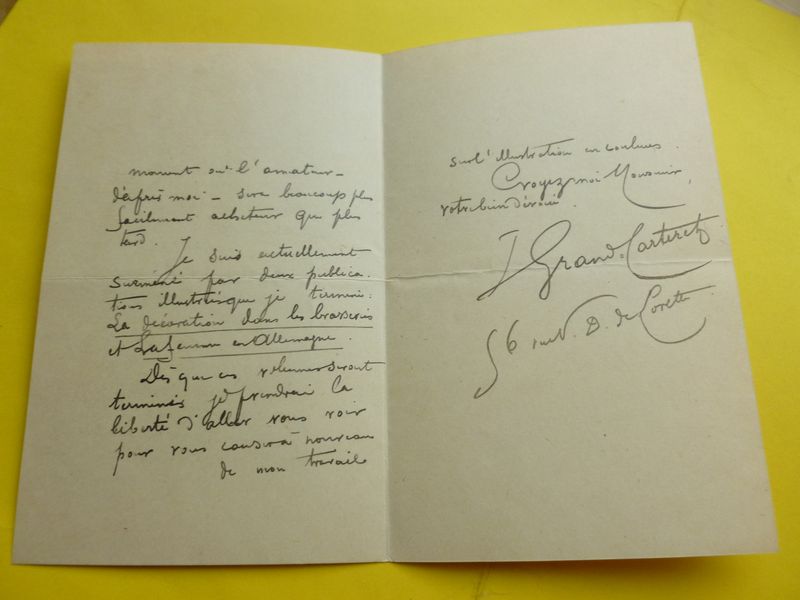 moment où l'amateur -
d'après moi - sera beaucoup plus
facilement acheteur que plus
tard.
Je suis actuellement
surmené par deux publica-
tions illustrées que je termine :
La décoration dans les brasseries
et La femme en Allemagne.
Dès que ces volumes seront
terminés je prendrai la
liberté d'aller vous voir
pour vous causer à nouveau
de mon travail
sur l'illustration en couleurs.
Croyez moi Monsieur,
votre bien dévoué.
J Grand-Carteret
56 rue N. D. de Lorette